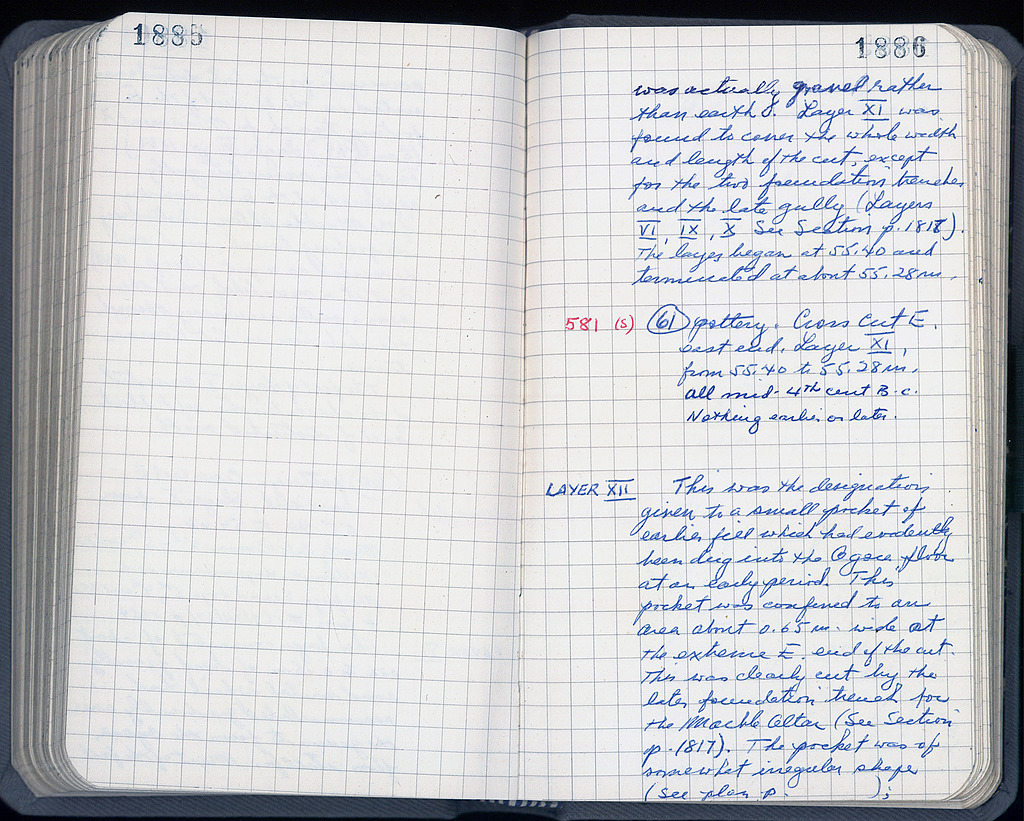 1885
1886
was actually gravel rather
than earth. Layer XI was
found to cover the whole width
and length of the cut, except
for the two foundation trenches
and the late gully (Layers
VI, IX, X See Section p. 1817).
The layer began at 55.40 and
terminated at about 55.28 m.
581 (s) 61 pottery. Cross Cut E.
east end. Layer XI,
from 55.40 to 55.28 m.
all mid-4th cent B.C.
Nothing earlier or later.
LAYER XII This was the designation
given to a small pocket of
earlier fill which had evidently
been dug into the Agora floor
at an early period. This
pocket was confined to an
area about 0.65 m. wide at
the extreme E. end of the cut.
This was clearly cut by the
later foundation trench for
the Marble Altar (See Section
p. 1817). The pocket was of
somewhat irregular shape
(see plan p. );